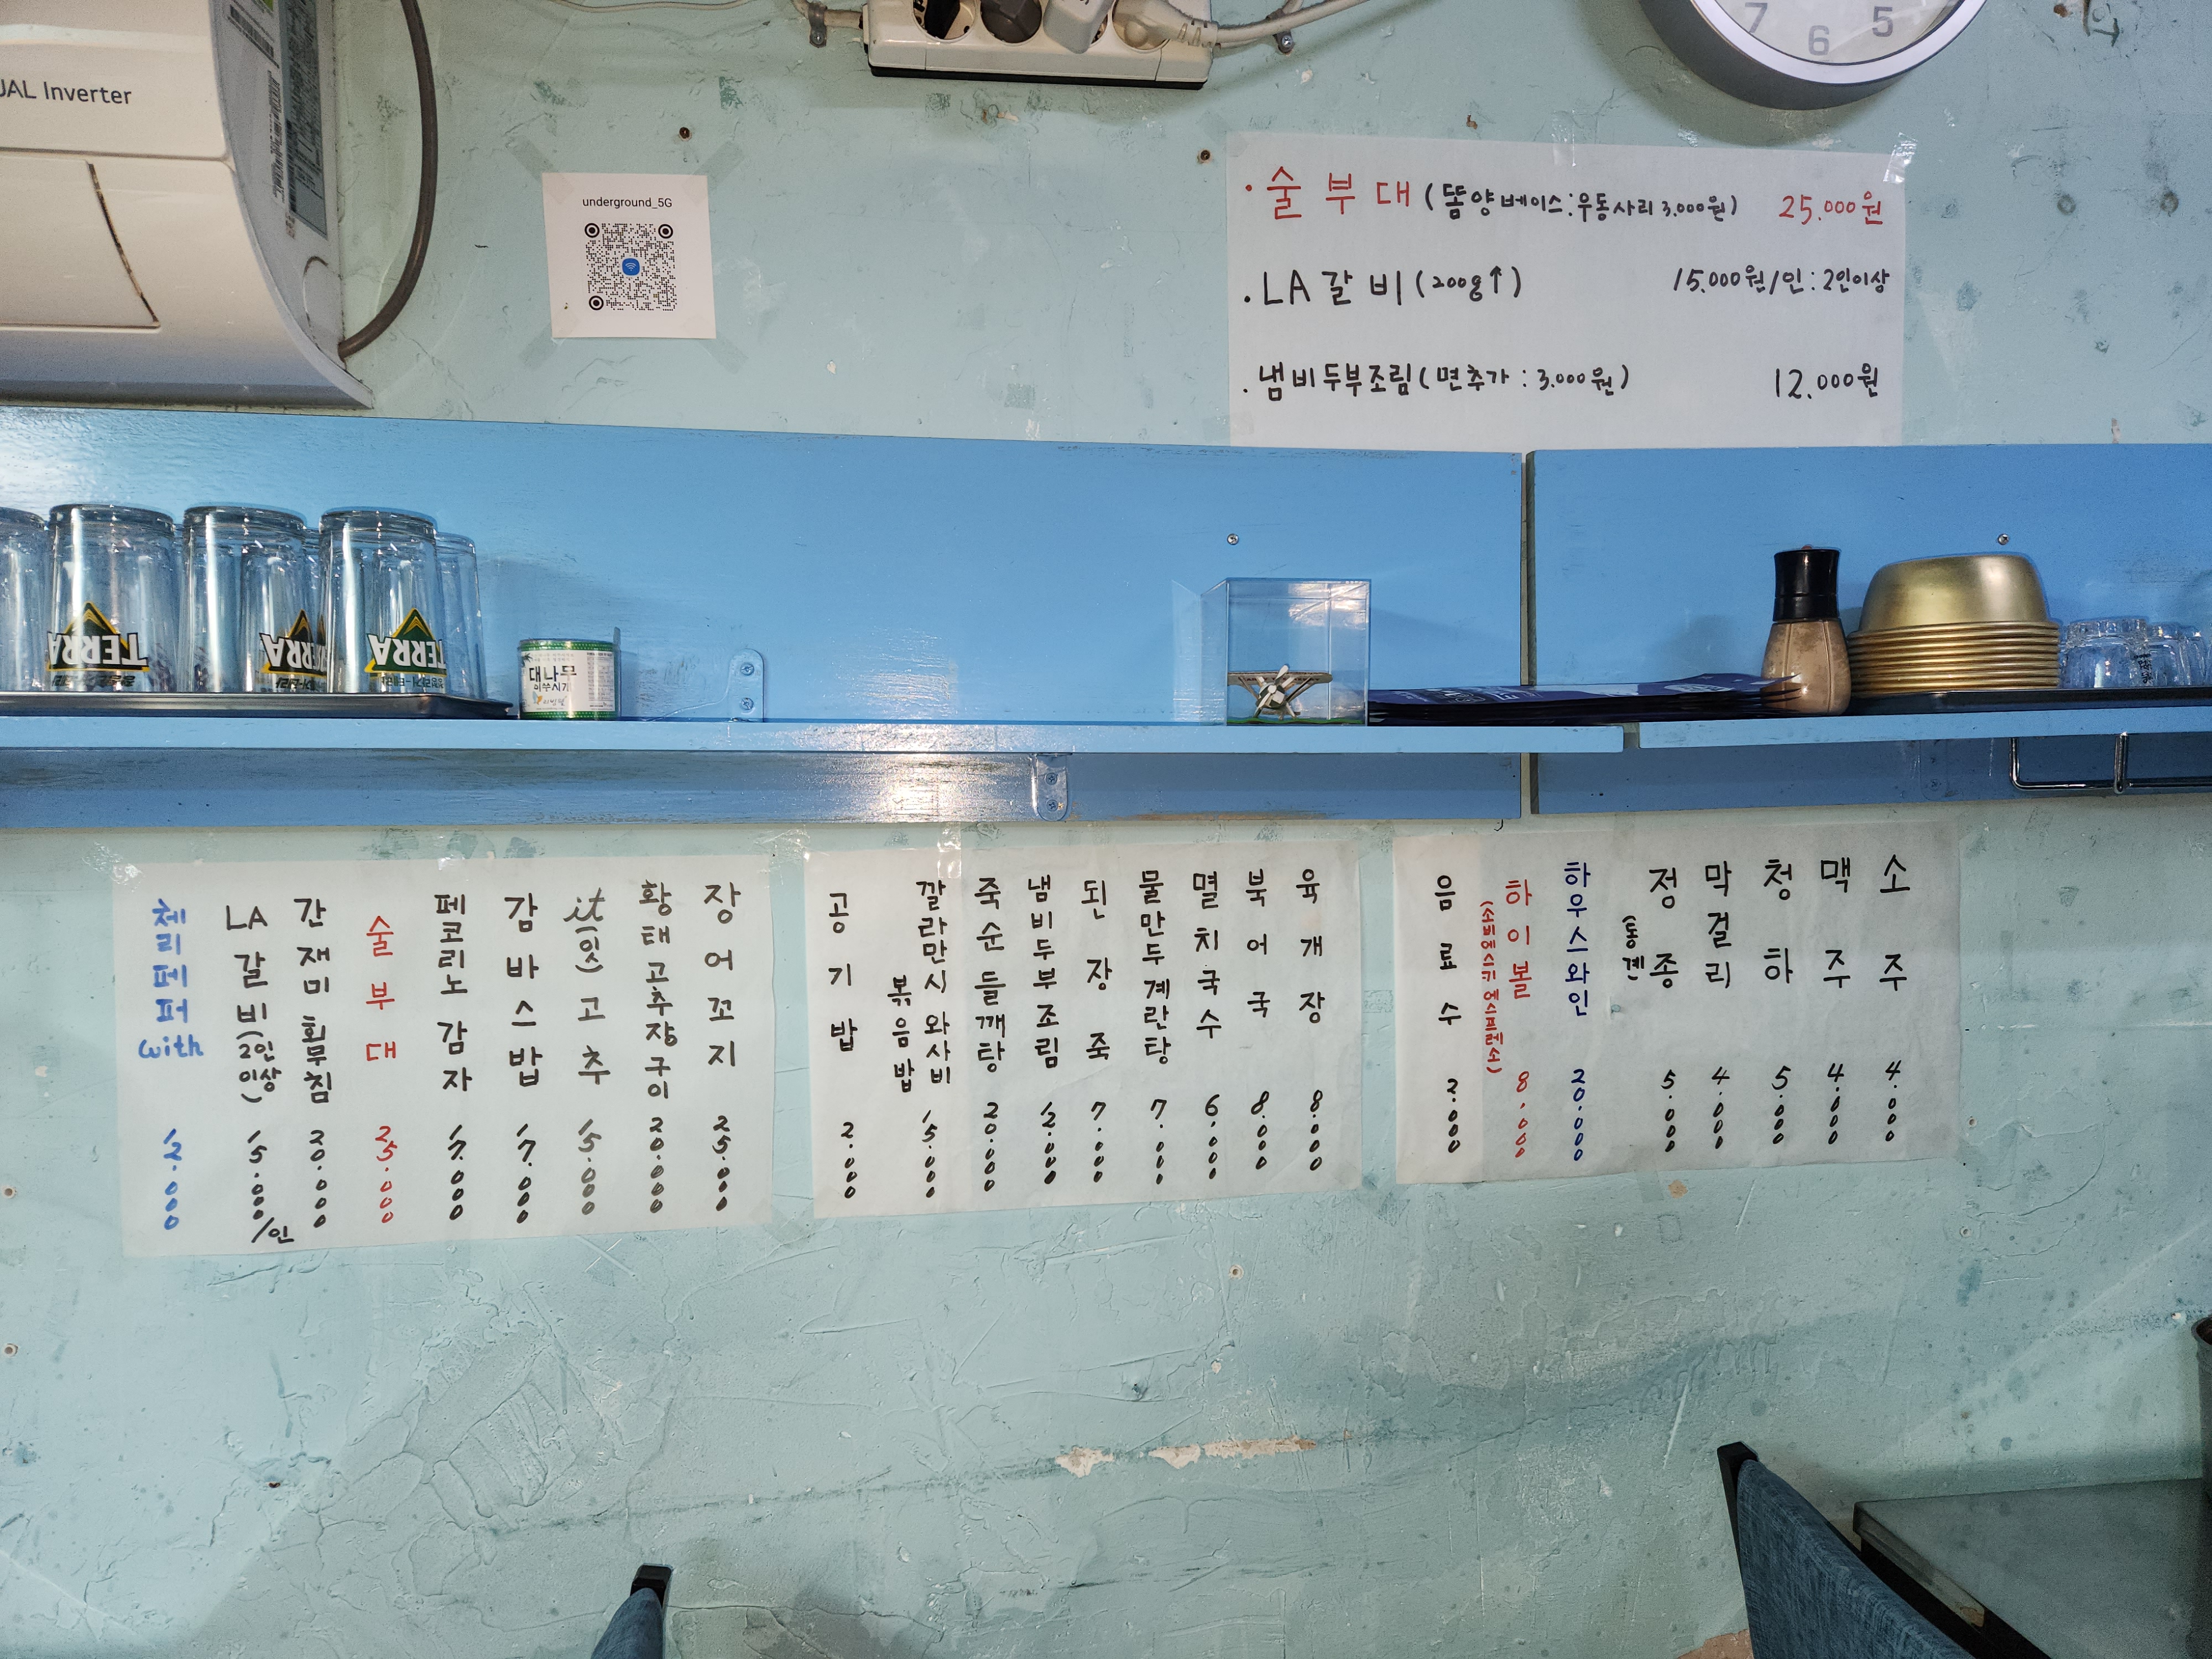 UAL Inverter
7 6 5
underground_5G
· 술부대 (똠양베이스:우동사리 3.000원) 25.000원
. LA갈비 (200g↑) 15.000원/인:2인이상
. 냄비두부조림 (면추가 : 3.000원) 12.000원
TERRA
TERRA
TERRA
대나무
이쑤시개
체리페퍼 with 12.000
LA갈비 (2인 이상) 15.000/인
간재미 회무침 20.000
술부대 25.000
페코리노 감자 17.000
감바스밥 17.000
it(잇)고추 15.000
황태고추장구이 20.000
장어꼬지 25.000
공기밥 2.000
깔라만시 와사비
볶음밥 15.000
죽순들깨탕 20.000
냄비두부조림 12.000
된장죽 7.000
물만두계란탕 7.000
멸치국수 6.000
북어국 8.000
육개장 8.000
음료수 2.000
하이볼 8.000
(소비에스키 에스프레소)
하우스와인 20.000
정종 5.000
막걸리 4.000
청하 5.000
맥주 4.000
소주 4.000